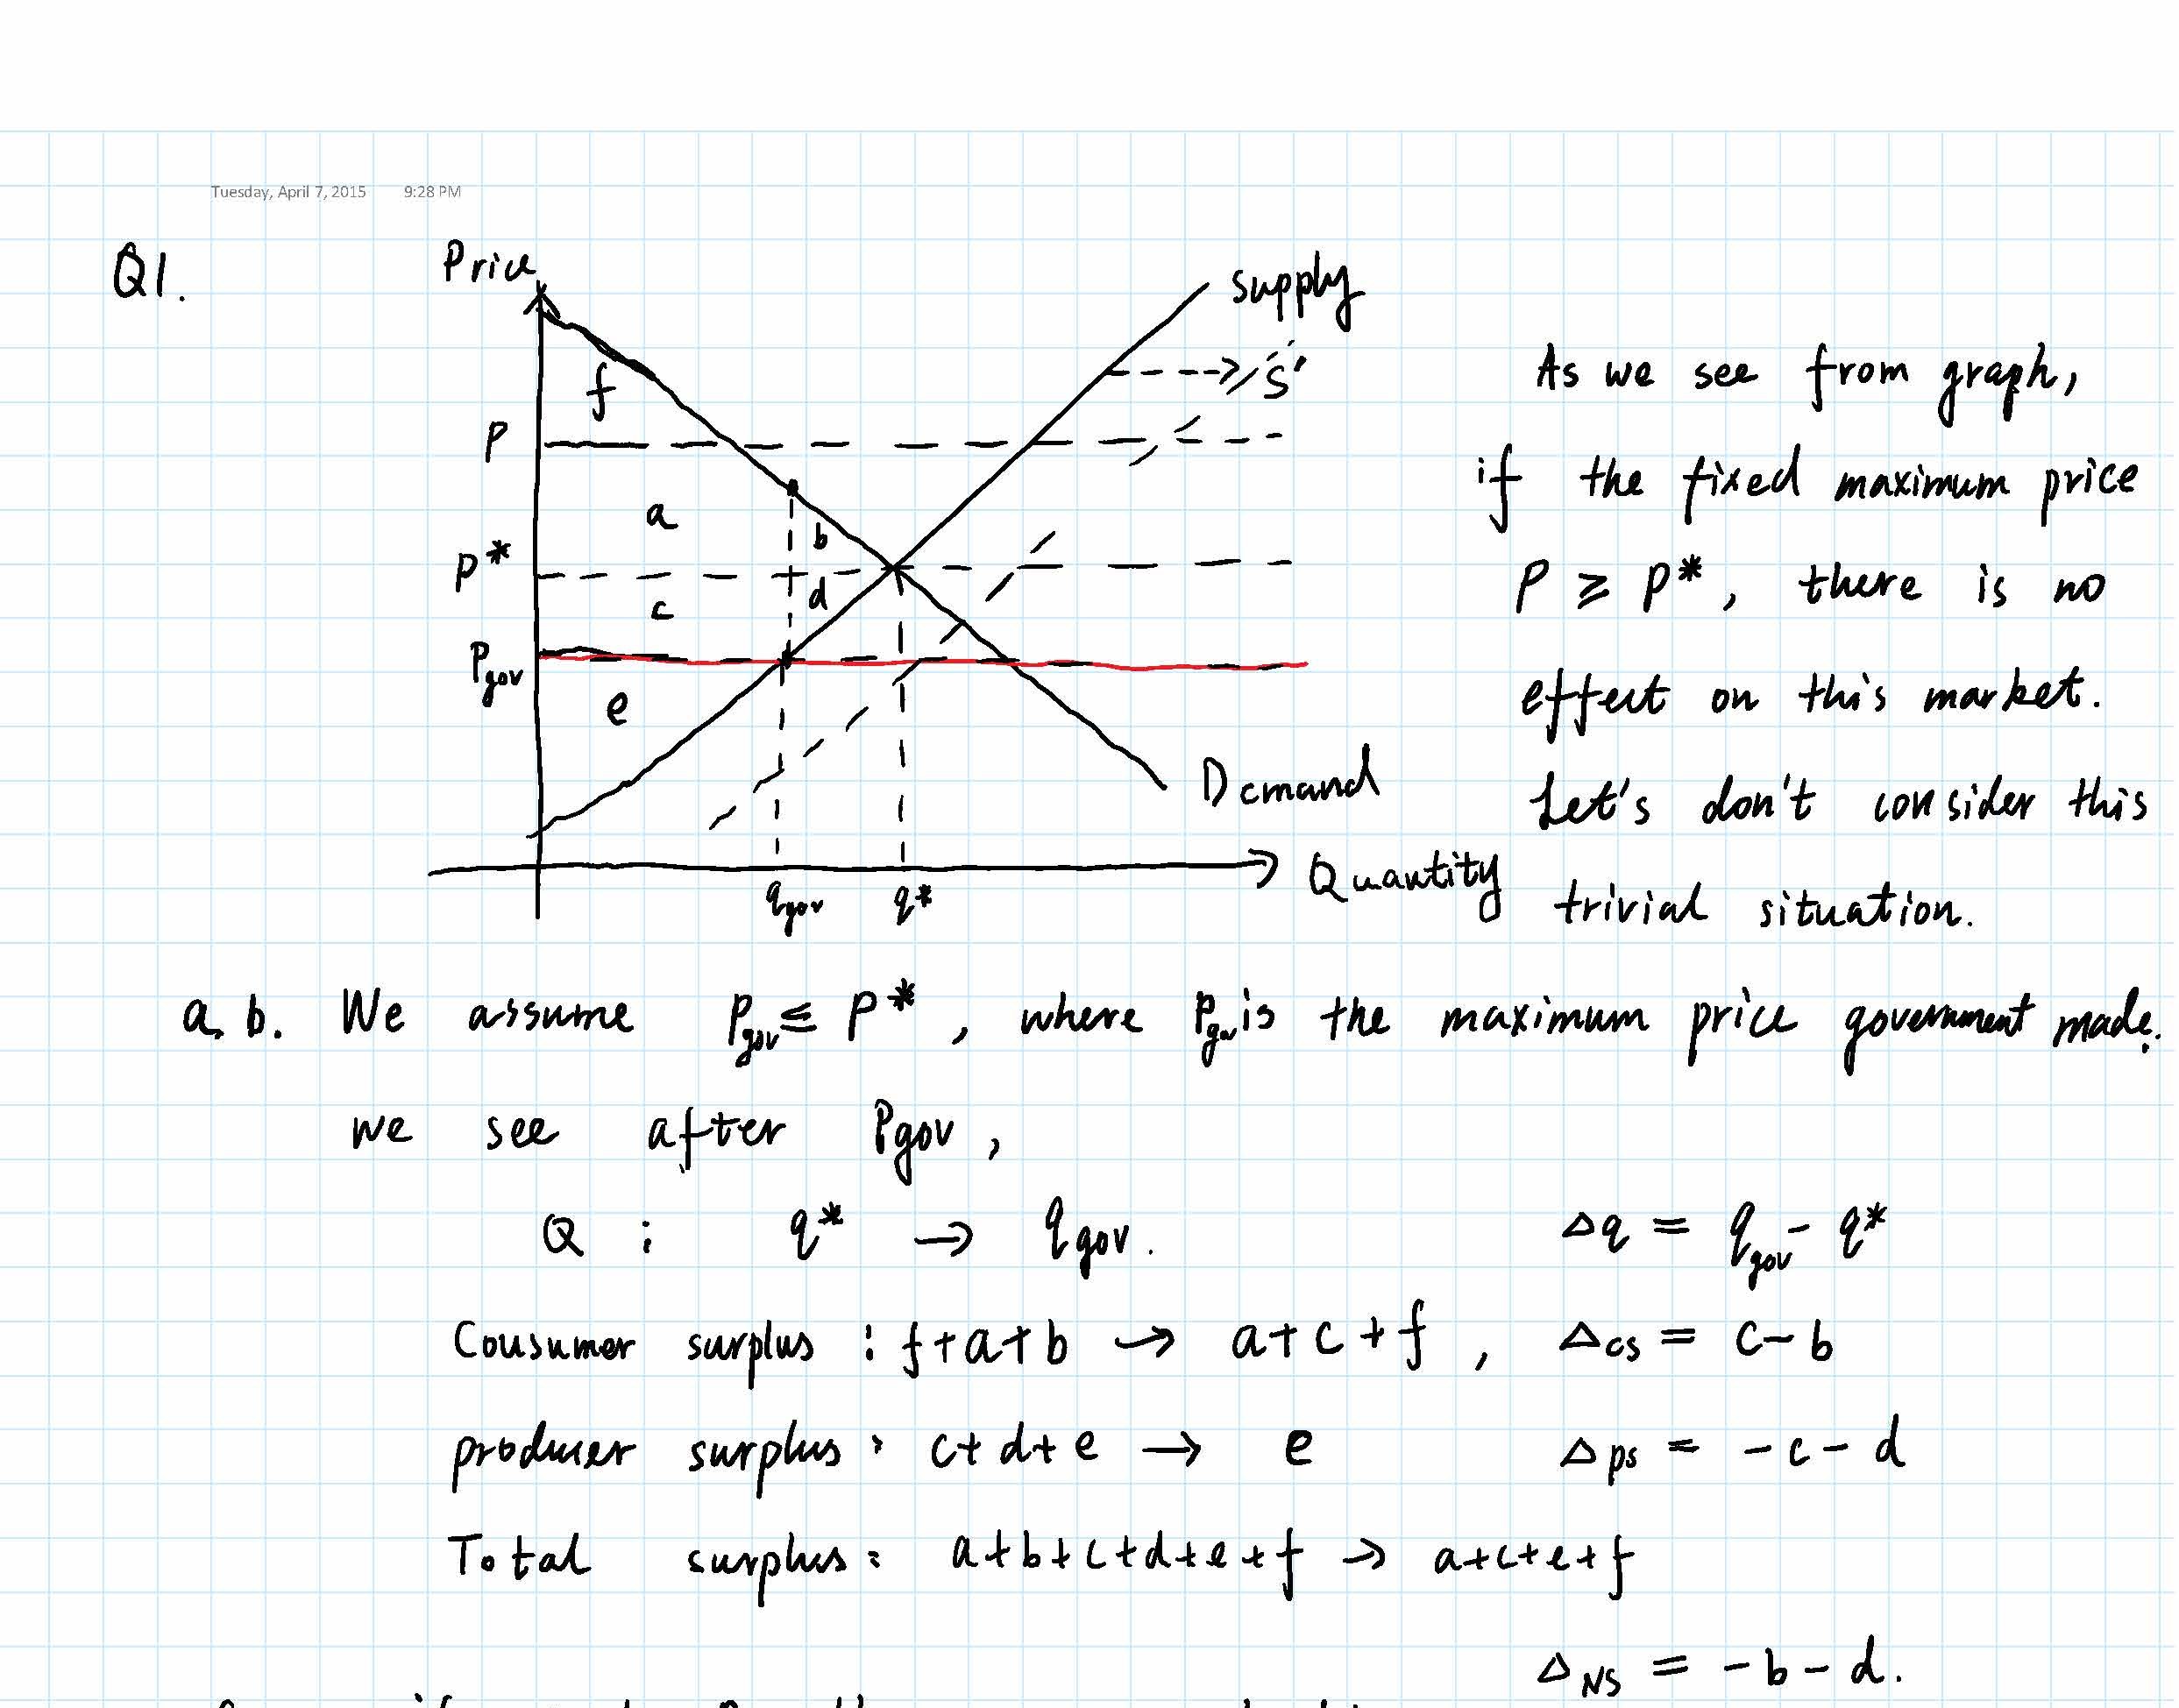 Tuesday, April 7, 2015 9:28 PM
Q1.
Price
supply
S'
f
P
a
b
P*
c
d
Pgov
e
Demand
Quantity
qgov q*
As we see from graph,
if the fixed maximum price
P ≥ P*, there is no
effect on this market.
Let's don't consider this
trivial situation.
a. b. We assume Pgov ≤ P*, where Pgov is the maximum price government made.
we see after Pgov,
Q : q* → qgov. Δq = qgov - q*
Cousumer surplus : f+a+b → a+c+f, Δcs = c-b
producer surplus : c+d+e → e Δps = -c-d
Total surplus : a+b+c+d+e+f → a+c+e+f
ΔNS = -b-d.